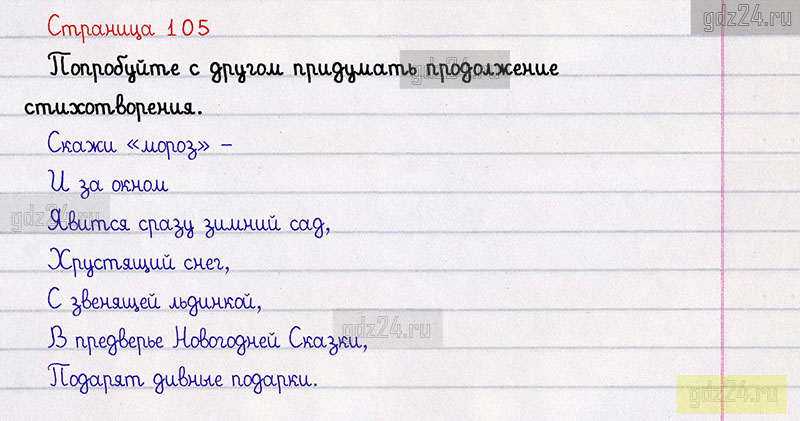 gdz24.ru
Страница 105
Попробуйте с другом придумать продолжение
gdz24.ru
стихотворения.
Скажи «мороз» –
И за окном
gdz24.ru
Явится сразу зимний сад,
Хрустящий снег,
С звенящей льдинкой,
gdz24.ru
В предверье Новогодней Сказки,
Подарят дивные подарки.
gdz24.ru